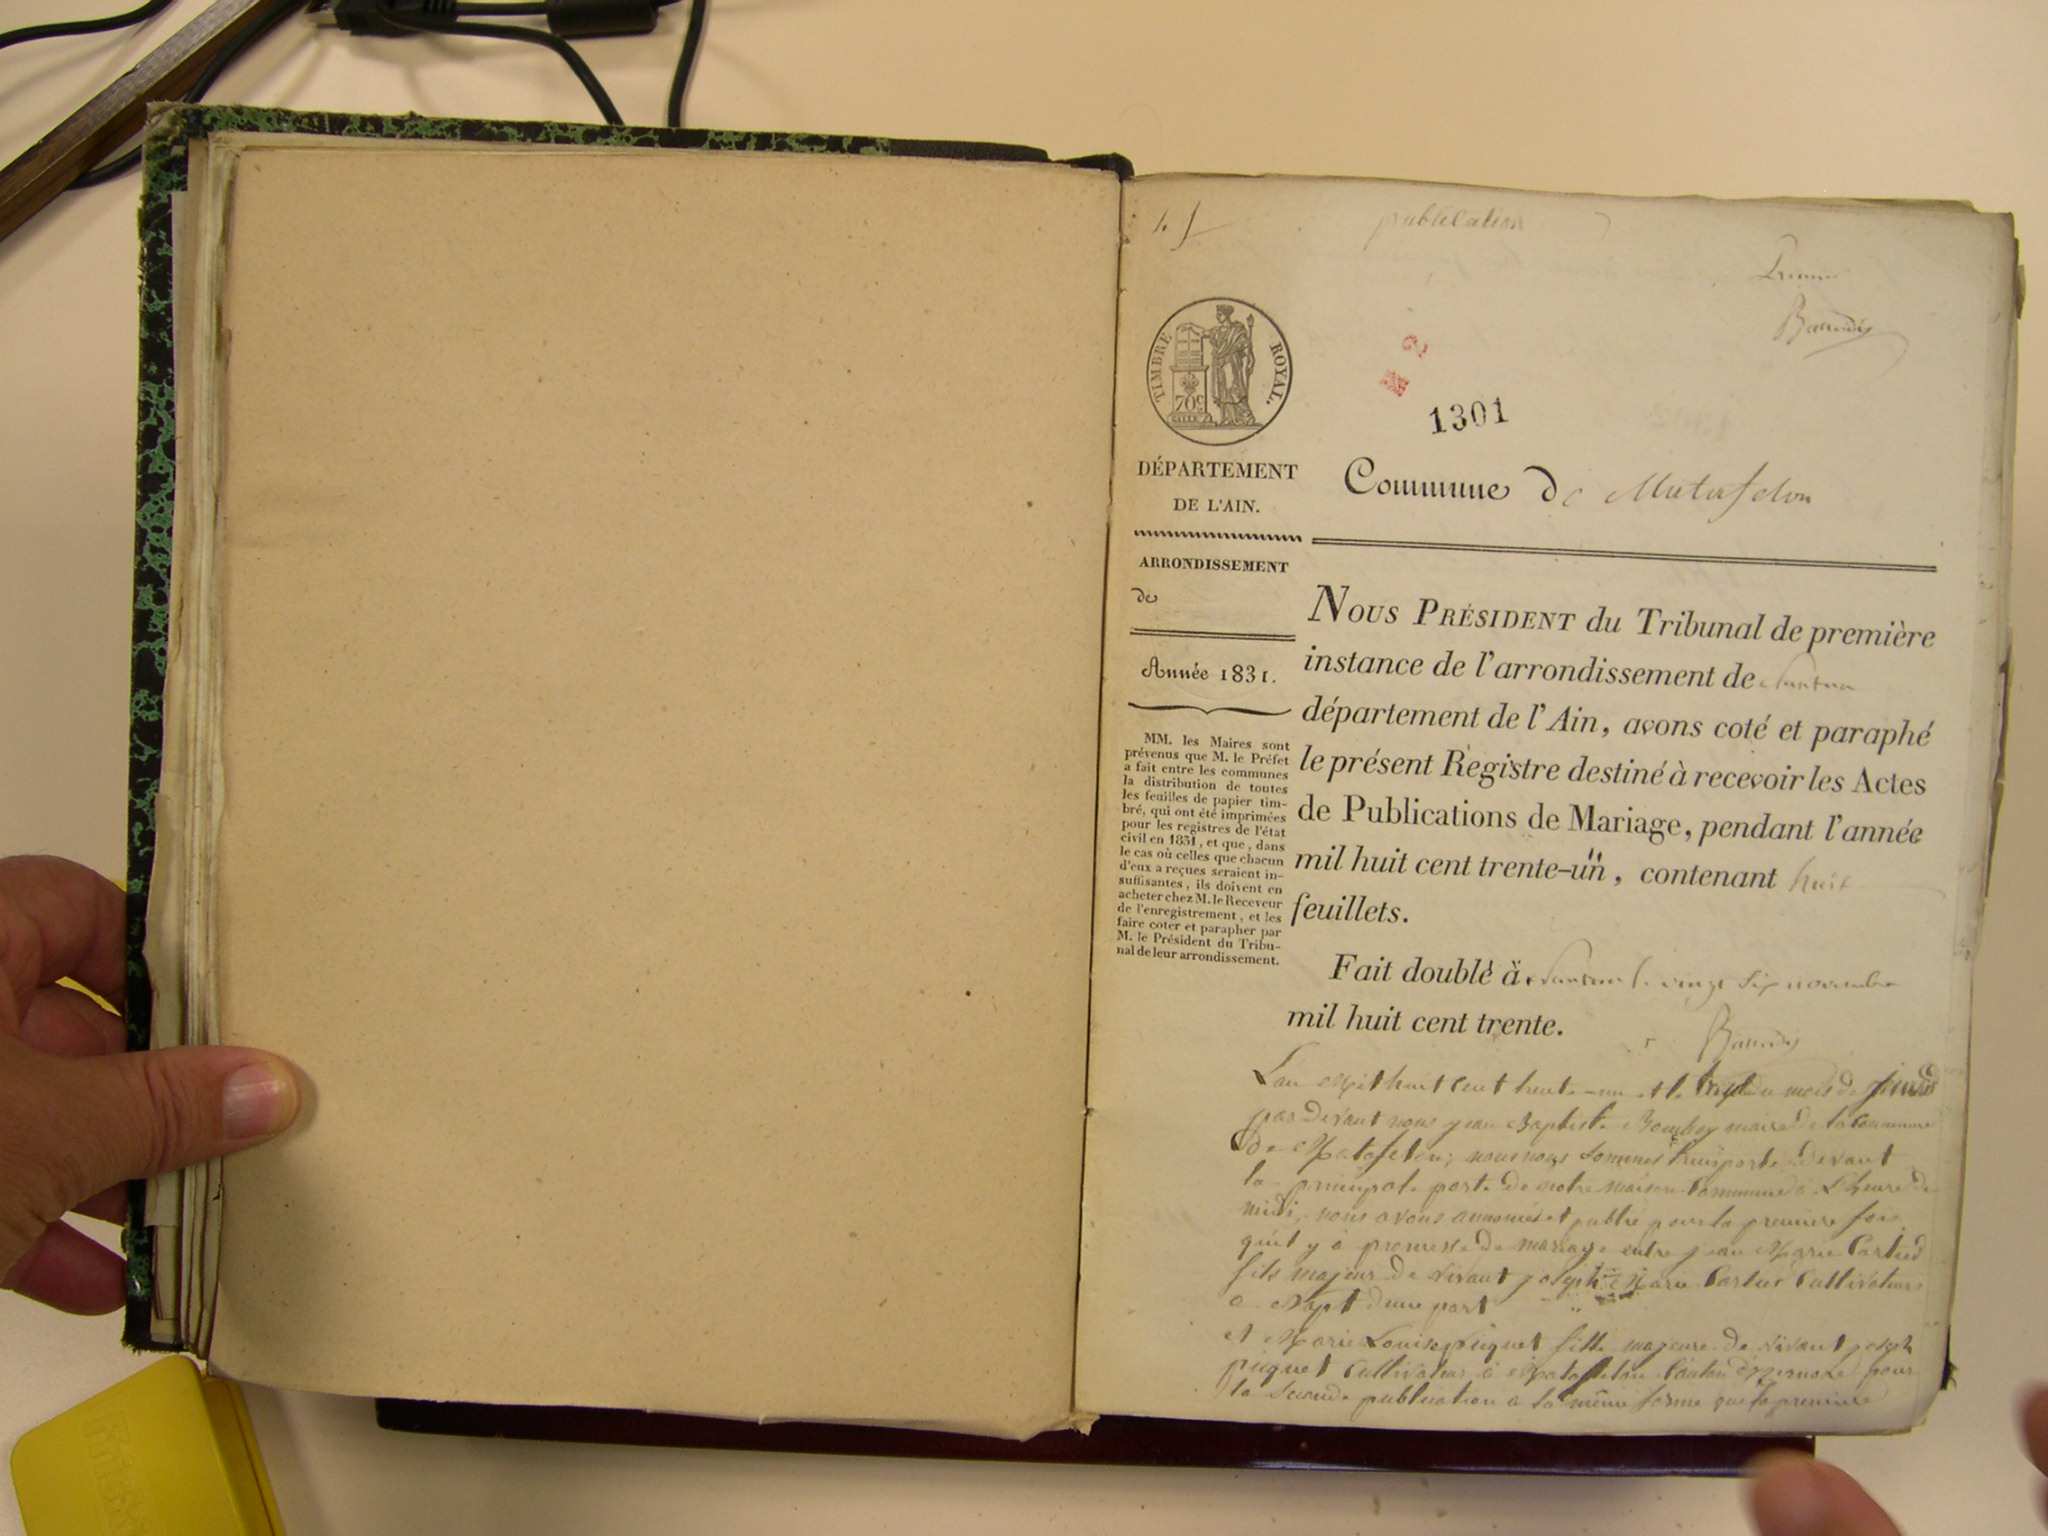 publication
TIMBRE ROYAL.
70c
1301
DÉPARTEMENT
DE L'AIN.
Commune de Matafelon
ARRONDISSEMENT
de
Année 1831.
MM. les Maires sont
prévenus que M. le Préfet
a fait entre les communes
la distribution de toutes
les feuilles de papier tim-
bré, qui ont été imprimées
pour les registres de l'état
civil en 1831, et que, dans
le cas où celles que chacun
d'eux a reçues seraient in-
suffisantes, ils doivent en
acheter chez M. le Receveur
de l'enregistrement, et les
faire coter et parapher par
M. le Président du Tribu-
nal de leur arrondissement.
NOUS PRÉSIDENT du Tribunal de première
instance de l'arrondissement de Nantua
département de l'Ain, avons coté et paraphé
le présent Registre destiné à recevoir les Actes
de Publications de Mariage, pendant l'année
mil huit cent trente-un, contenant huit
feuillets.
Fait double à Nantua le vingt six novembre
mil huit cent trente.
L'an Mil huit Cent trente-un et le du mois de
par devant nous jean Baptiste maire de la Commune
de Matafelon; nous nous sommes transporté devant
la principale porte de notre maison Commune à L'heure de
midi, nous avons annoncé et publié pour la premiere fois
qu'il y à promesse de mariage entre jean Marie Carlied
fils majeur de vivant joseph Marie Carlier Cultivateur
a d'une part
et Marie Louise piquet fille majeure de vivant joseph
piquet Cultivateur à Matafelon Canton d'izernore pour
la seconde publication a la même forme que la premiere